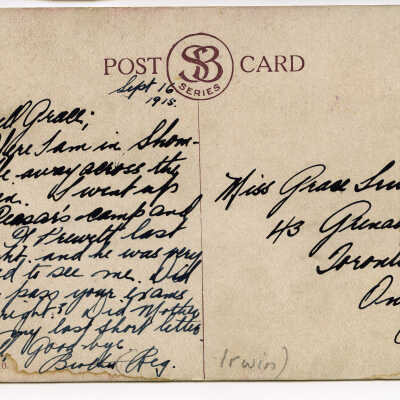 POST CARD
SB
SERIES
Sept 16
1915.
ll Grace;
ere I am in Shorn-
e away across the
I went up
Caesar's camp and
Prewett last
ht, and he was very
ed to see me. Did
pass your exams
right? Did Mother
my last short letter
Good-bye
Brother Reg.
Miss Grace
43 Grena
Toronto
On
Irwin)